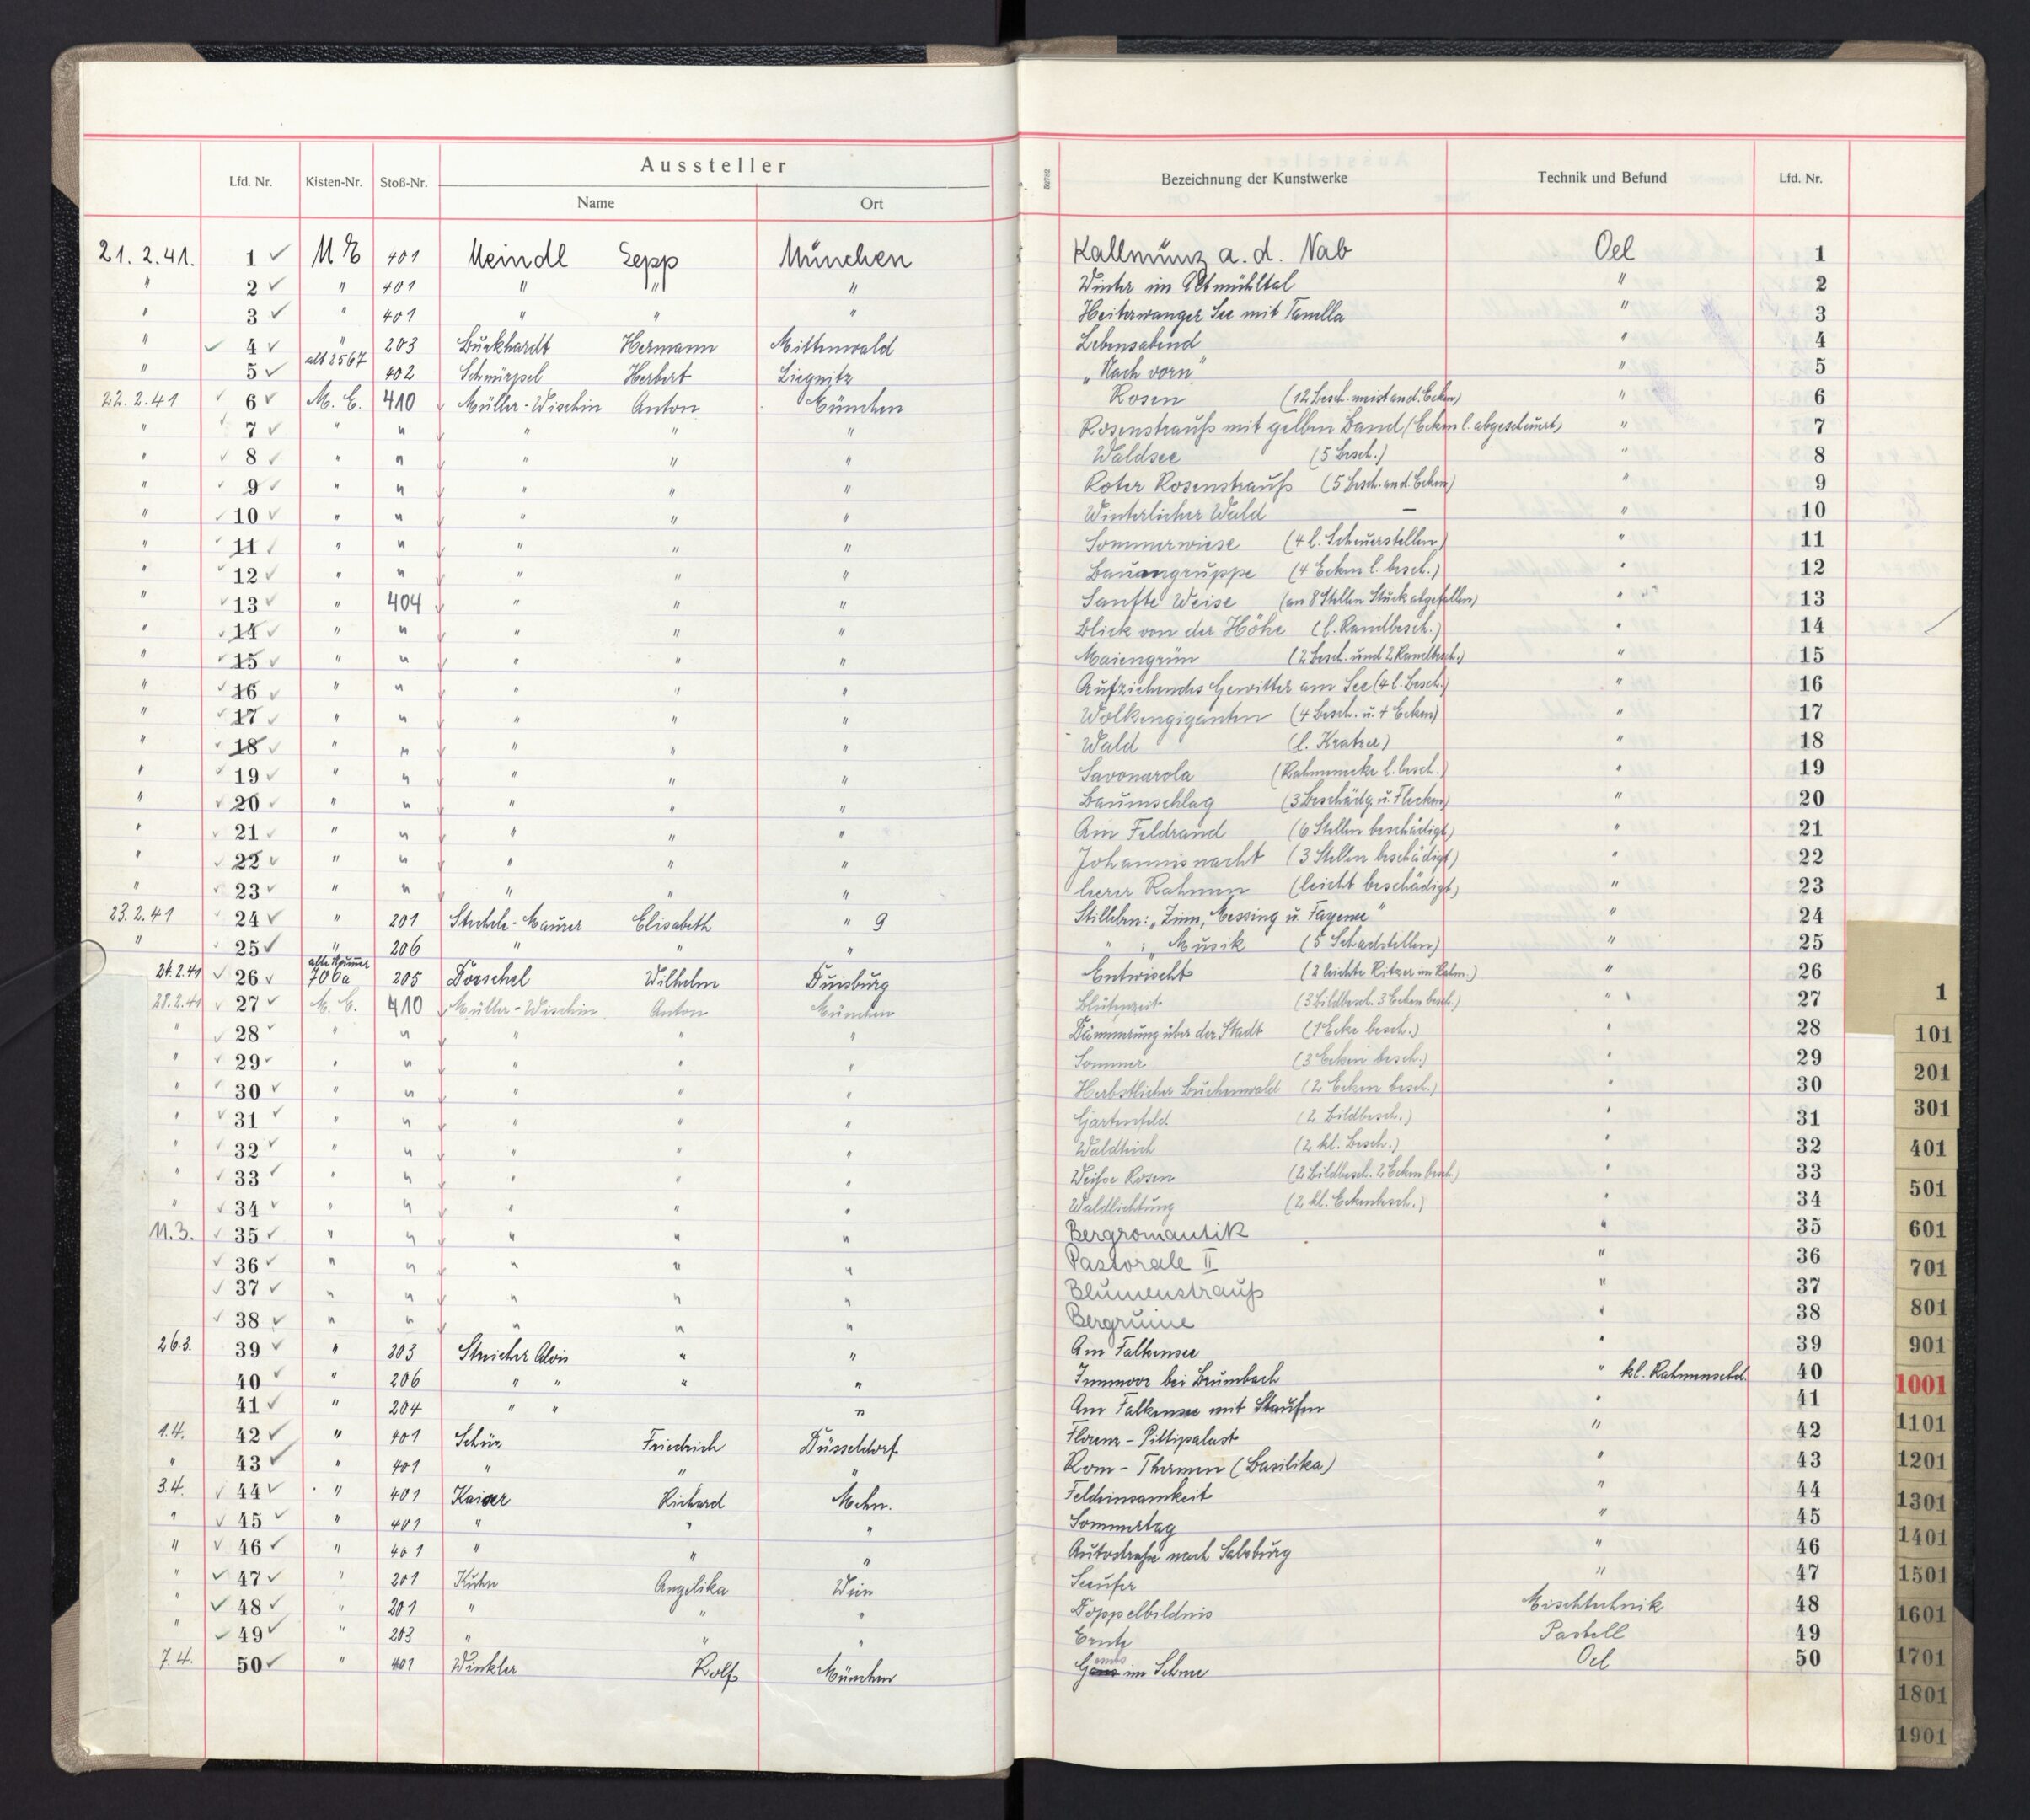 Aussteller
Lfd. Nr. Kisten-Nr. Stoß-Nr. Name Ort Bezeichnung der Kunstwerke Technik und Befund Lfd. Nr.
21. 2. 41. 1 ✓ M E 401 Meindl Sepp München Kallmünz a. d. Nab Oel 1
" 2 ✓ " 401 " " " Winter im Altmühltal " 2
" 3 ✓ " 401 " " " Heiterwanger See mit Tanella " 3
" ✓ 4 ✓ " 203 Burkhardt Hermann Mittenwald Lebensabend " 4
" 5 ✓ alt 2567 402 Schmirgel Herbert Liegnitz „Nach vorn" " 5
22. 2. 41 ✓ 6 ✓ M. E. 410 Müller-Wischin Anton München Rosen (12 Besch. meist an d. Ecken) " 6
" ✓ 7 ✓ " " " " " Rosenstrauß mit gelben Band (Ecken l. abgescheuert) " 7
" ✓ 8 ✓ " " " " " Waldsee (5 Besch.) " 8
" ✓ 9 ✓ " " " " " Roter Rosenstrauß (5 Besch. an d. Ecken) " 9
" ✓ 10 ✓ " " " " " Winterlicher Wald – " 10
" ✓ 11 ✓ " " " " " Sommerwiese (4 l. Scheuerstellen) " 11
" ✓ 12 ✓ " " " " " Bauerngruppe (4 Ecken l. besch.) " 12
" ✓ 13 ✓ " 404 " " " Sanfte Weise (an 8 Stellen Stuck abgefallen) " 13
" ✓ 14 ✓ " " " " " Blick von der Höhe (l. Randbesch.) " 14
" ✓ 15 ✓ " " " " " Maiengrün (2 Besch. und 2 Randbesch.) " 15
" ✓ 16 ✓ " " " " " Aufziehendes Gewitter am See (4 l. Besch.) " 16
" ✓ 17 ✓ " " " " " Wolkengiganten (4 Besch. u. 4 Ecken) " 17
" ✓ 18 ✓ " " " " " Wald (l. Kratzer) " 18
" ✓ 19 ✓ " " " " " Savonarola (Rahmenecke l. besch.) " 19
" ✓ 20 ✓ " " " " " Baumschlag (3 Beschädg u. Flecken) " 20
" ✓ 21 ✓ " " " " " Am Feldrand (6 Stellen beschädigt) " 21
" ✓ 22 ✓ " " " " " Johannisnacht (3 Stellen beschädigt) " 22
" ✓ 23 ✓ " " " " " leerer Rahmen (leicht beschädigt) " 23
23. 2. 41 ✓ 24 ✓ " 201 Stuhrle-Maurer Elisabeth " 9 Stilleben: „Zinn, Messing u. Fayence" " 24
" ✓ 25 ✓ " 206 " " " " : „Musik (5 Schadstellen) " 25
24. 2. 41 ✓ 26 ✓ alte Nummer 706a 205 Dörschel Wilhelm Duisburg Entwischt (2 leichte Ritzer im Rahm.) " 26
28. 2. 41 ✓ 27 ✓ M. E. 410 Müller-Wischin Anton München Blütenzeit (3 Bildbesch. 3 Ecken besch.) " 27
" ✓ 28 ✓ " " " " " Dämmerung über der Stadt (1 Ecke besch.) " 28
" ✓ 29 ✓ " " " " " Sommer (3 Ecken besch.) " 29
" ✓ 30 ✓ " " " " " Herbstlicher Buchenwald (2 Ecken besch.) " 30
" ✓ 31 ✓ " " " " " Gartenfeld (2 Bildbesch.) " 31
" ✓ 32 ✓ " " " " " Waldteich (2 kl. Besch.) " 32
" ✓ 33 ✓ " " " " " Weisse Rosen (2 Bildbesch. 2 Ecken besch.) " 33
" ✓ 34 ✓ " " " " " Waldlichtung (2 kl. Eckenbesch.) " 34
11. 3. ✓ 35 ✓ " " " " " Bergromantik " 35
✓ 36 ✓ " " " " " Pastorale II " 36
✓ 37 ✓ " " " " " Blumenstrauß " 37
✓ 38 ✓ " " " " " Bergruine " 38
26.3. 39 ✓ " 203 Streicher Alois " " Am Falkensee " 39
40 ✓ " 206 " " " " Innmoor bei Brumbach " kl. Rahmenschd. 40
41 ✓ " 204 " " " Am Falkensee mit Staufen " 41
1.4. 42 ✓ " 401 Schüz Friedrich Düsseldorf Florenz – Pittipalast " 42
" 43 ✓ " 401 " " " Rom – Thermen (Basilika) " 43
3.4. ✓ 44 ✓ " 401 Kaiser Richard Mchn. Feldeinsamkeit " 44
" ✓ 45 ✓ " 401 " " " Sommertag " 45
" ✓ 46 ✓ " 401 " " " Autostraße nach Salzburg " 46
" ✓ 47 ✓ " 201 Kuhn Angelika Wien Seeufer " 47
" ✓ 48 ✓ " 201 " " " Doppelbildnis Mischtechnik 48
" ✓ 49 ✓ " 203 " " " Ernte Pastell 49
7.4. 50 ✓ " 401 Winkler Rolf München Gams im Schnee Oel 50
1
101
201
301
401
501
601
701
801
901
1001
1101
1201
1301
1401
1501
1601
1701
1801
1901